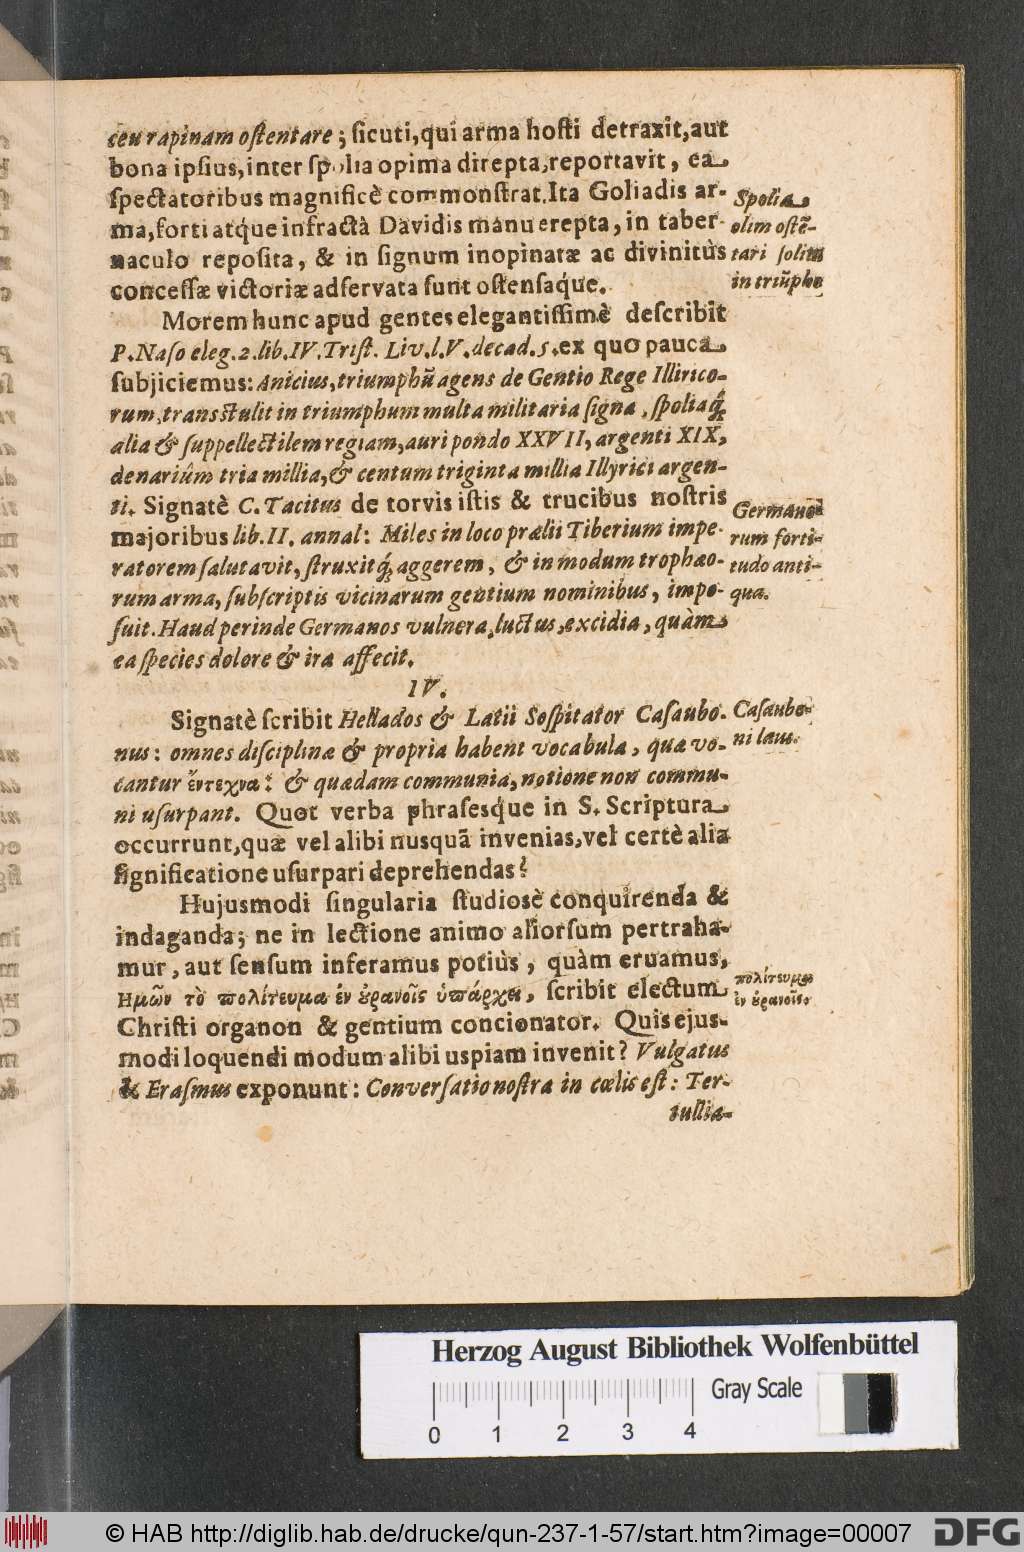 ceu rapinam ostentare; sicuti, qui arma hosti detraxit, aut
bona ipsius, inter spolia opima direpta, reportavit, ea
spectatoribus magnificè commonstrat. Ita Goliadis ar-
ma, forti atq́ue infractâ Davidis manu erepta, in taber-
naculo reposita, & in signum inopinatæ ac divinitùs
concessæ victoriæ adservata sunt ostensaq́ue.
Spolia
olim ostẽ-
tari solita
in triũpho
Morem hunc apud gentes elegantissimè describit
P. Naso eleg. 2. lib. IV. Trist. Liv. l. V. decad. 5. ex quo pauca
subjiciemus: Anicius, triumphũ agens de Gentio Rege Illirico-
rum, transtulit in triumphum multa militaria signa, spoliaq́;
alia & suppellectilem regiam, auri pondo XXVII, argenti XIX,
denariûm tria millia, & centum triginta millia Illyrici argen-
ti. Signatè C. Tacitus de torvis istis & trucibus nostris
majoribus lib. II. annal: Miles in loco prælii Tiberium impe-
ratorem salutavit, struxitq́; aggerem, & in modum trophæo-
rum arma, subscriptis vicinarum gentium nominibus, impo-
suit. Haud perinde Germanos vulnera, luctus, excidia, quàm
ea species dolore & ira affecit.
Germano-
rum forti-
tudo anti-
qua.
IV.
Signatè scribit Hellados & Latii Sospitator Casaubo-
nus: omnes disciplinæ & propria habent vocabula, quæ vo-
cantur ἔντεχνα: & quædam communia, notione non commu-
ni usurpant. Quot verba phrasesq́ue in S. Scriptura
occurrunt, quæ vel alibi nusquã invenias, vel certè alia
significatione usurpari deprehendas?
Casaubo-
ni laus.
Hujusmodi singularia studiosè conquirenda &
indaganda; ne in lectione animo aliorsum pertraha-
mur, aut sensum inferamus potiùs, quàm eruamus,
Ημῶν τὸ πολίτευμα ἐν ȣ̓ρανοῖς ὑπάρχει, scribit electum
Christi organon & gentium concionator. Quis ejus-
modi loquendi modum alibi uspiam invenit? Vulgatus
& Erasmus exponunt: Conversatio nostra in cœlis est: Ter-
tullia-
πολίτευμα
ἐν ȣ̓ρανοῖς.
Herzog August Bibliothek Wolfenbüttel
Gray Scale
0 1 2 3 4
© HAB http://diglib.hab.de/drucke/qun-237-1-57/start.htm?image=00007
DFG